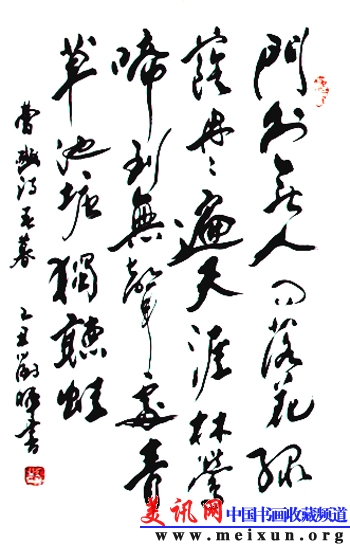 門外無人问落花綠
蔭冉冉遍天涯林鶯
啼到無聲處青
草池塘獨聽蛙
曹豳诗春暮 乙丑 書
美讯网 中国书画收藏频道
www.meixun.org